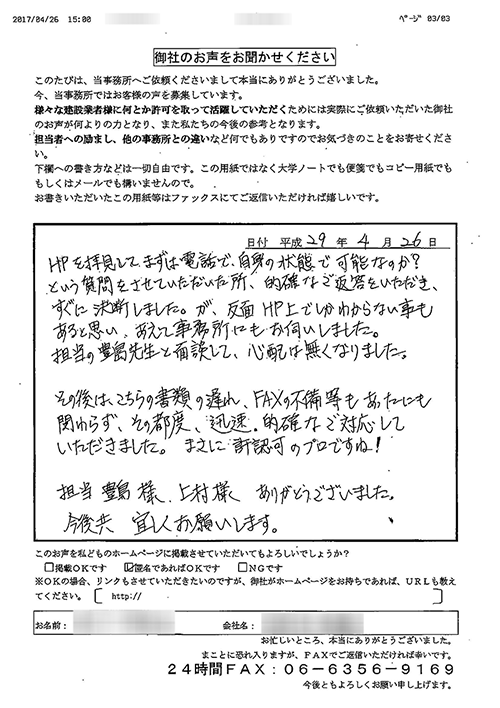 2017/04/26 15:00 ﾍﾟｰｼﾞ 03/03
御社のお声をお聞かせください
このたびは、当事務所へご依頼くださいまして本当にありがとうございました。
今、当事務所ではお客様の声を募集しています。
様々な建設業者様に何とか許可を取って活躍していただくためには実際にご依頼いただいた御社
のお声が何よりの力となり、また私たちの今後の参考となります。
担当者への励まし、他の事務所との違いなど何でもありですのでお気づきのことをお寄せくださ
い。
下欄への書き方などは一切自由です。この用紙ではなく大学ノートでも便箋でもコピー用紙でも
もしくはメールでも構いませんので。
お書きいただいたこの用紙等はファックスにてご返信いただければ嬉しいです。
日付 平成 29 年 4 月 26 日
HPを拝見して、まずは電話で、自身の状態で可能なのか?
という質問をさせていただいた所、的確なご返答をいただき、
すぐに決断しました。が、反面HP上でしかわからない事も
あると思い、あえて事務所にもお伺いしました。
担当の豊島先生と面談して、心配は無くなりました。
その後は、こちらの書類の遅れ、FAXの不備等もあったにも
関わらず、その都度、迅速、的確なご対応して
いただきました。まさに許認可のプロですね!
担当 豊島様、上村様 ありがとうございました。
今後共 宜しくお願いします。
このお声を私どものホームページに掲載させていただいてもよろしいでしょうか?
□掲載OKです ☑匿名であればOKです □NGです
※OKの場合、リンクもさせていただきたいのですが、御社がホームページをお持ちであれば、URLも教え
てください。[ http:// ]
お名前: 会社名:
お忙しいところ、本当にありがとうございました。
まことに恐れ入りますが、FAXでご返信いただければ幸いです。
24時間FAX:06-6356-9169
今後ともよろしくお願い申し上げます。